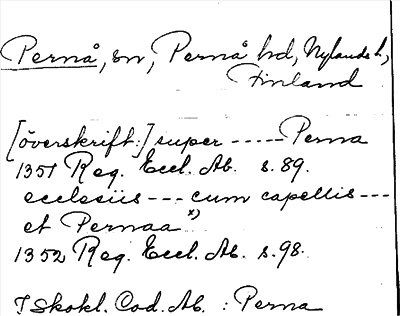 Pernå, sn, Pernå hd, Nylands l,
Finland
[överskrift:] super ----- Perna
1351 Reg. Eccl. Ab. s. 89.
ecclesiis --- cum capellis ---
et Pernaa x)
1352 Reg. Eccl. Ab. s. 98.
I Skokl. Cod. Ab. : Perna